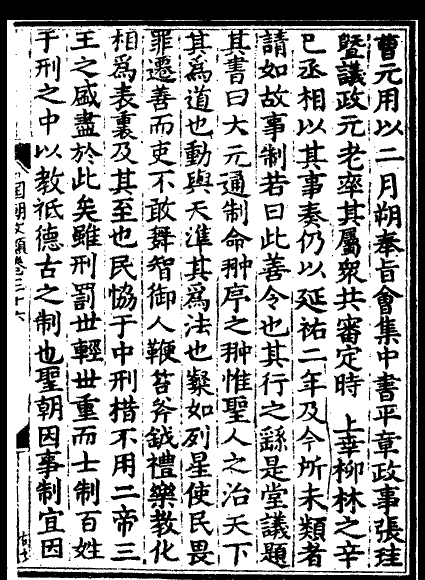 曹元用以二月朔奉旨會集中書平章政事張珪
暨議政元老率其屬衆共審定時　上幸柳林之辛
巳丞相以其事奏仍以延祐二年及今所未類者
請如故事制若曰此善令也其行之繇是堂議題
其書曰大元通制命翀序之翀惟聖人之治天下
其爲道也動與天準其爲法也粲如列星使民畏
罪遷善而吏不敢舞智御人鞭笞斧鉞禮樂教化
相爲表裏及其至也民恊于中刑措不用二帝三
王之盛盡於此矣雖刑罰世輕世重而士制百姓
于刑之中以教祗德古之制也聖朝因事制宜因
國朝文類卷三十六